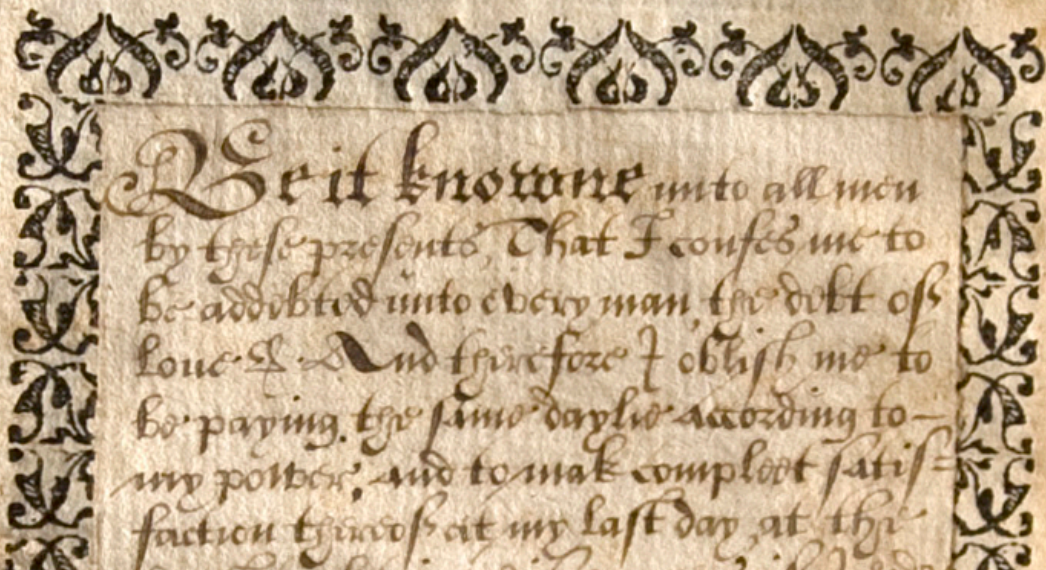 Be it knowne unto all men
by these presents, That I confes me to
be addebted unto every man, the debt off
Love & And therefore I oblish me to
be paying the same daylie according to
my power, and to mak compleet satis=
faction thereof at my last day, at the